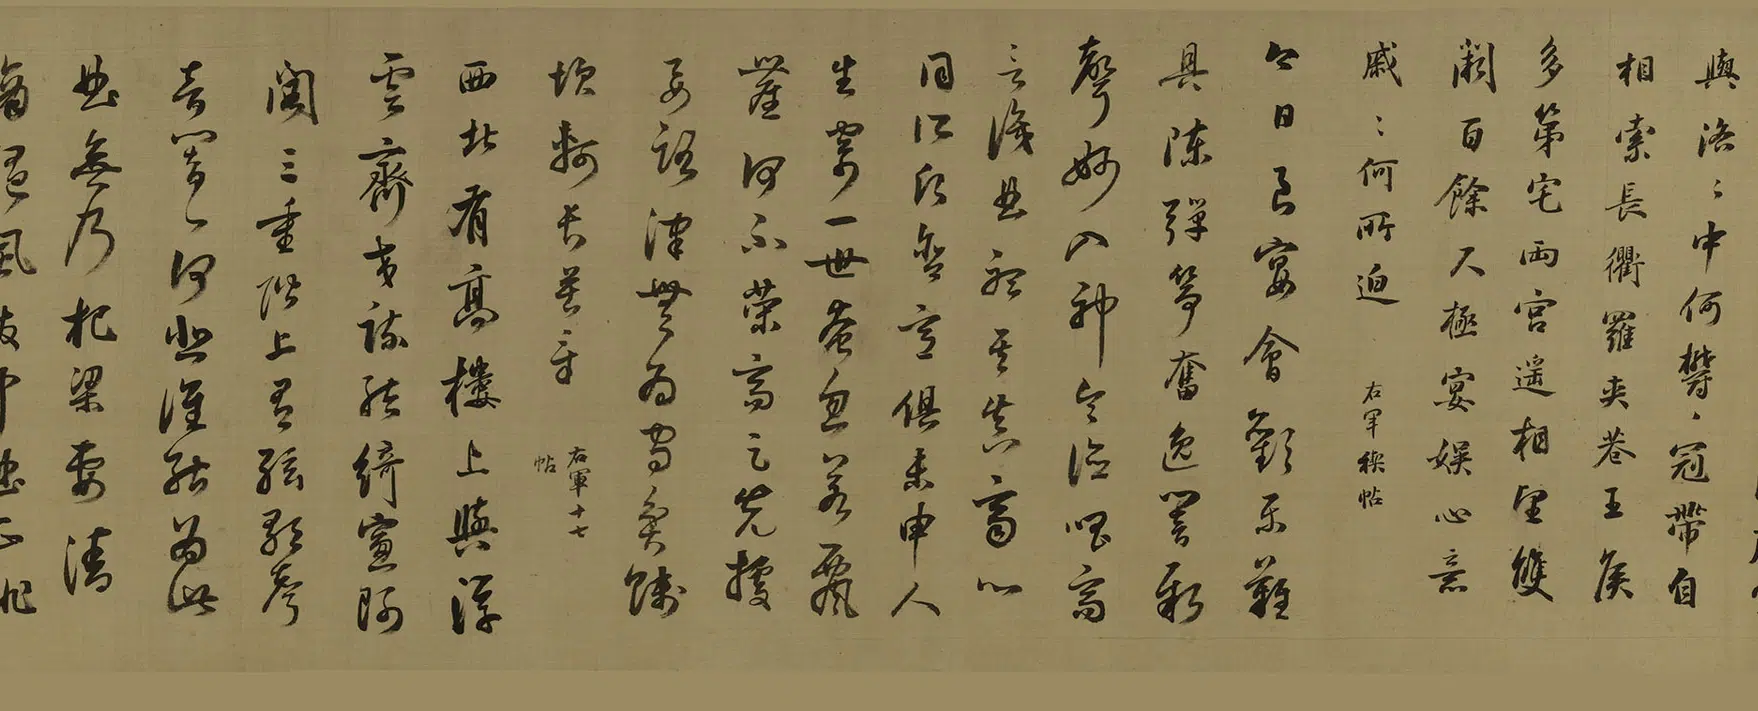 與洛〻中何鬱〻冠帶自
相索長衢羅夾巷王侯
多第宅兩宮遥相望雙
闕百餘尺極宴娱心意
戚〻何所迫 右軍稧帖
今日良宴會歡樂難
具陳彈筝奮逸響新
聲妙入神令德唱高
言識曲聽其真齊心
同所願含意俱未申人
生寄一世奄忽若飄
塵何不策高足先據
要路津無為守窮賤
坎軻長苦辛 右軍十七
帖
西北有高樓上與浮
雲齊交疏結綺窗阿
閣三重階上有絃歌聲
音響一何悲誰能為此
曲無乃杞梁妻清
商隨風發中曲正徘